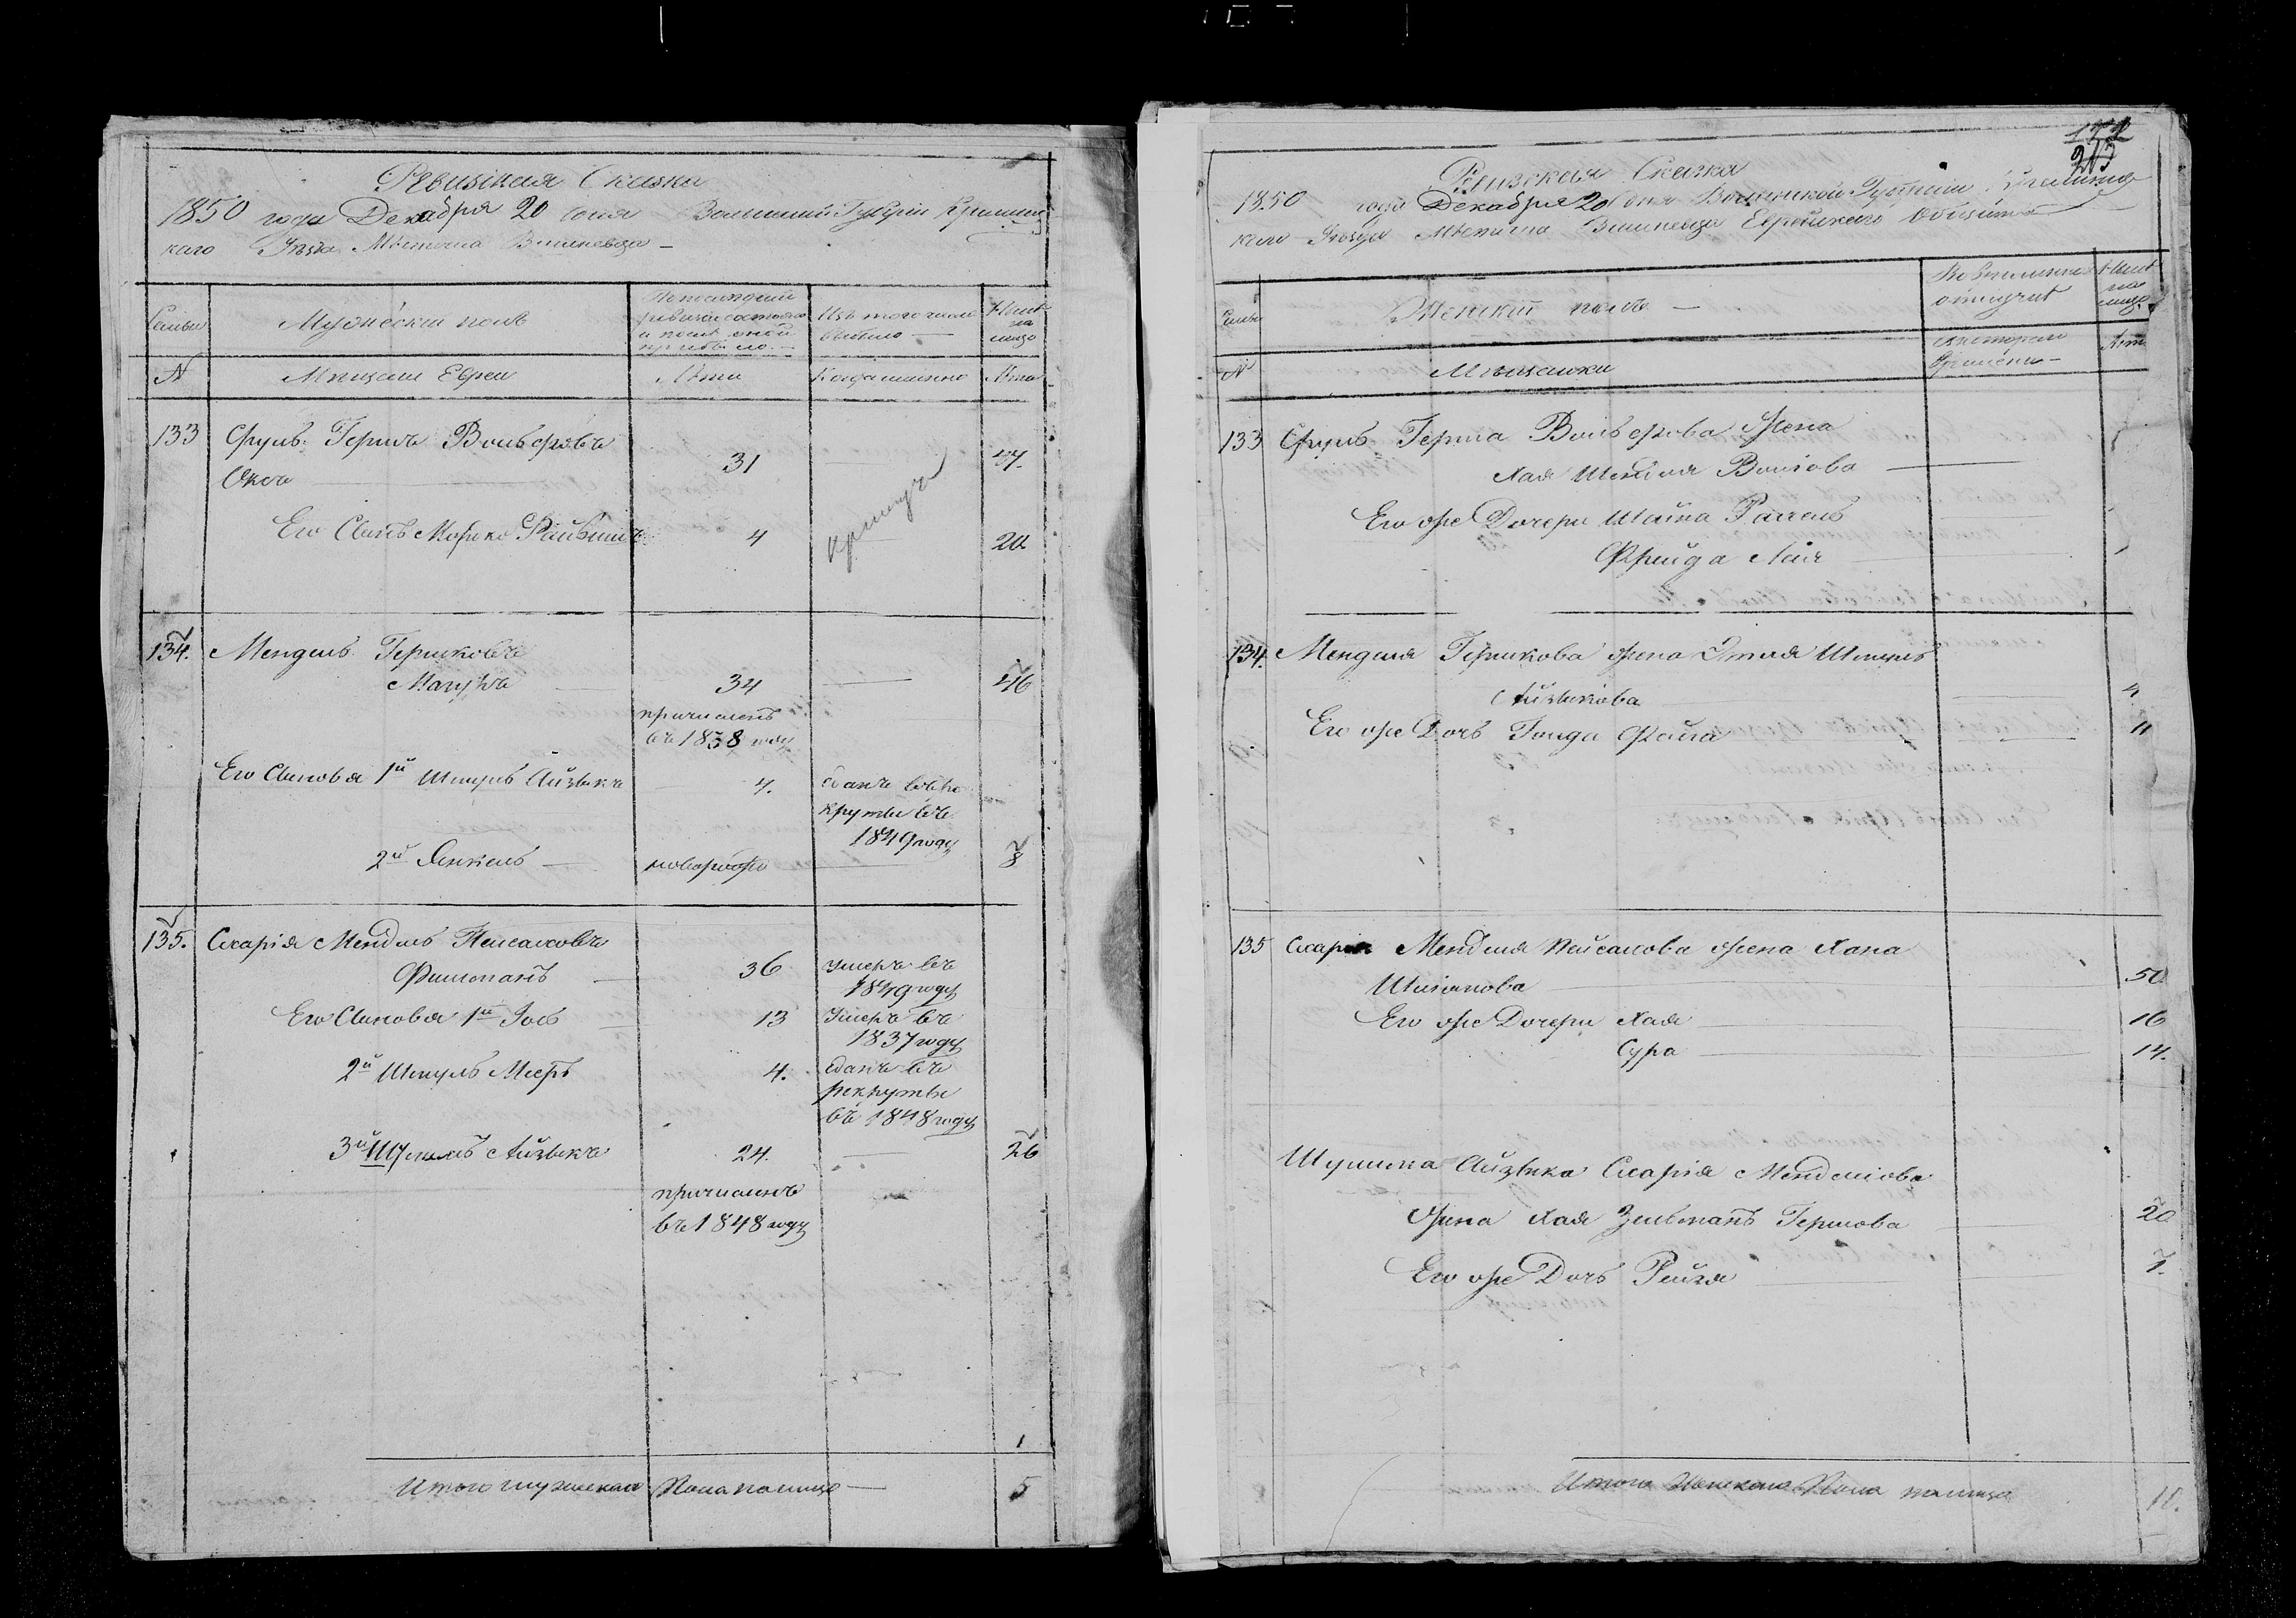 Ревизская Сказка
1850 года Декабря 20 дня Волынской Губерніи Кременец
каго Уезда Местечка Вишневца
Семьи
Мужескій полъ
По последней
ревизіи состояло
и после оной
прибыло
Изъ того числа
выбыло
Ныне
на
лицо
№
Мещане Евреи
Лета
Когда именно
Лета
133 Сруль Гершъ Вольфовъ
Оксъ 31 47.
Его Сынъ Мошко Файвишъ 4 20
134. Мендель Гершковъ
34 46
причисленъ
въ 1838 году
Его Сыновья 1й Шмуль Айзыкъ 4. сданъ въ ре
круты въ
1849 году
2й Янкель новорожд 8
135. Схарія Мендель Пейсаховъ
Фишманъ 36 умеръ въ
1849 году
Его Сыновья 1й Іось 13 умеръ въ
1837 году
2й Шмуль Мееръ 4. сданъ въ
рекруты
въ 1848 году
3й Шулимъ Айзыкъ 24. 26
причисленъ
въ 1848 году
1
Итого мужескаго Пола налицо 5
172
213
Ревизская Сказка
1850 года Декабря 20 дня Волынской Губерніи Кременец
каго Уезда Местечка Вишневца Еврейскаго Общества
Семьи
Женскій полъ
Во временной
отлучке
Ныне
на
лицо
№
Мещанки
съ котораго
времени
Лета
133 Сруль Герша Вольфова Жена
Хая Шейндля
Его же Дочери Шайна Рахель
Фрейда Лая
134. Менделя Гершкова жена Этля
Айзикова 4
Его же Дочь Голда Фейга 11
135 Схарія Менделя Пейсахова жена Хана
50
Его же Дочери Хая 16
Сура 14.
Шулима Айзыка Схарія Менделіова
Жена Хая Зельманъ Гершова 20
Его же Дочь Рейзя 1.
Итого Женскаго Пола налицо 10.